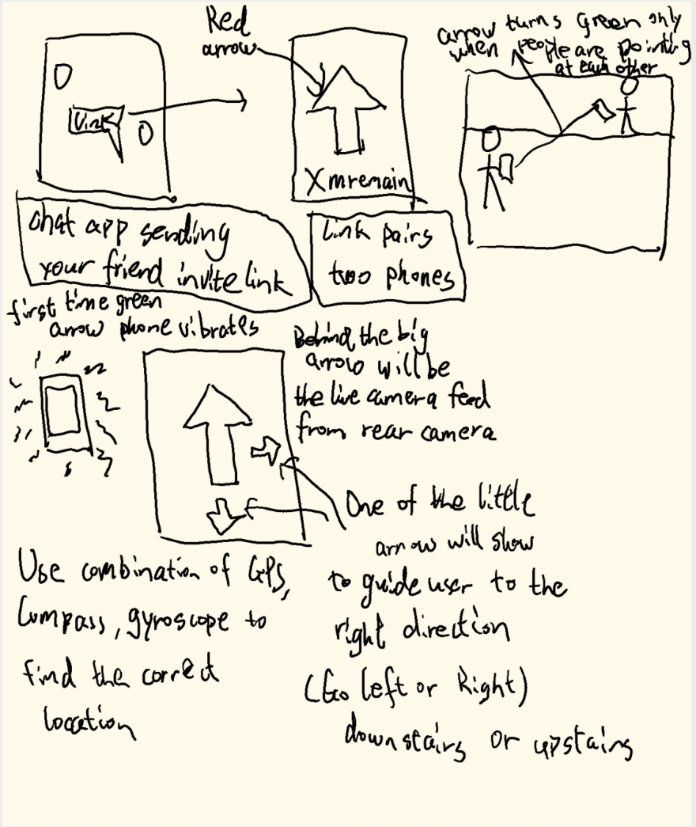 Red
arrow
arrow turns green only
when people are pointing
at each other
Link
X m remain
chat app sending
your friend invite link
Link pairs
two phones
first time green
arrow phone vibrates
Behind the big
arrow will be
the live camera feed
from rear camera
One of the little
arrow will show
to guide user to the
right direction
(Go left or Right)
downstairs or upstairs
Use combination of GPS,
Compass, gyroscope to
find the correct
location